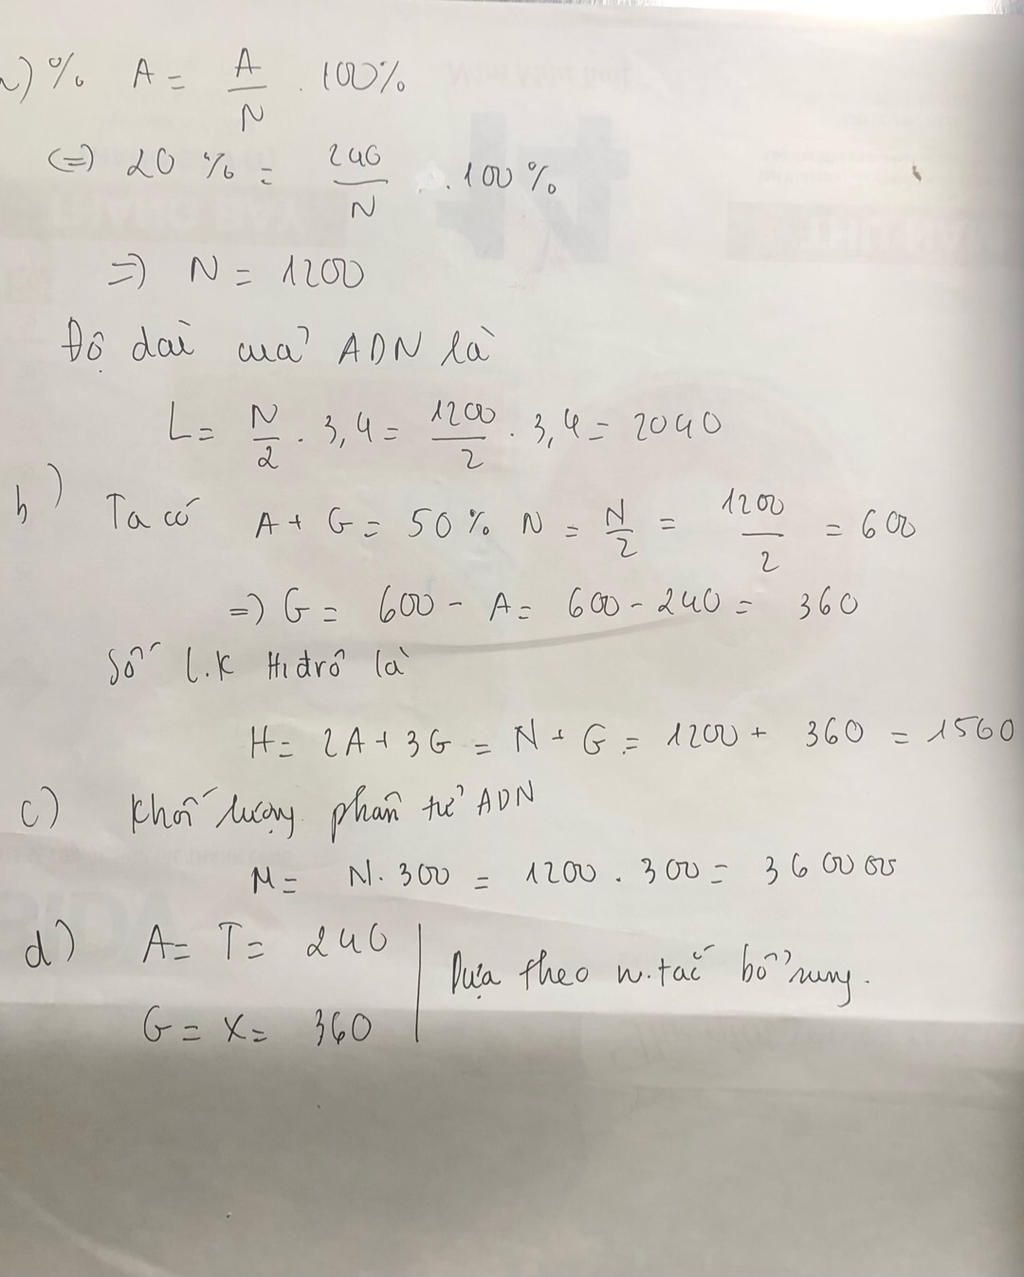 a) % A = A/N . 100%
(=) 20 % = 240/N . 100%
=) N = 1200
Độ dài của ADN là
L = N/2 . 3,4 = 1200/2 . 3,4 = 2040
b) Ta có A + G = 50 % N = N/2 = 1200/2 = 600
=) G = 600 - A = 600 - 240 = 360
Số l.k Hiđrô là
H = 2A + 3G = N + G = 1200 + 360 = 1560
c) Khối lượng phân tử ADN
M = N . 300 = 1200 . 300 = 360000
d) A = T = 240 | Dựa theo n.tắc bổ sung.
G = X = 360